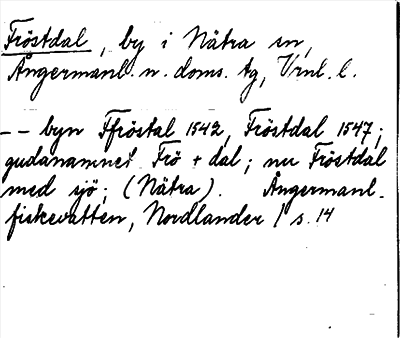 Fröstdal, by i Nätra sn,
Ångermanl. n. doms. tg, Vrnl. l.
-- byn Ffröstal 1542, Fröstdal 1547;
gudanamnet Frö + dal; nu Fröstdal
med sjö; (Nätra). Ångermanl.
fiskevatten, Nordlander / s. 14